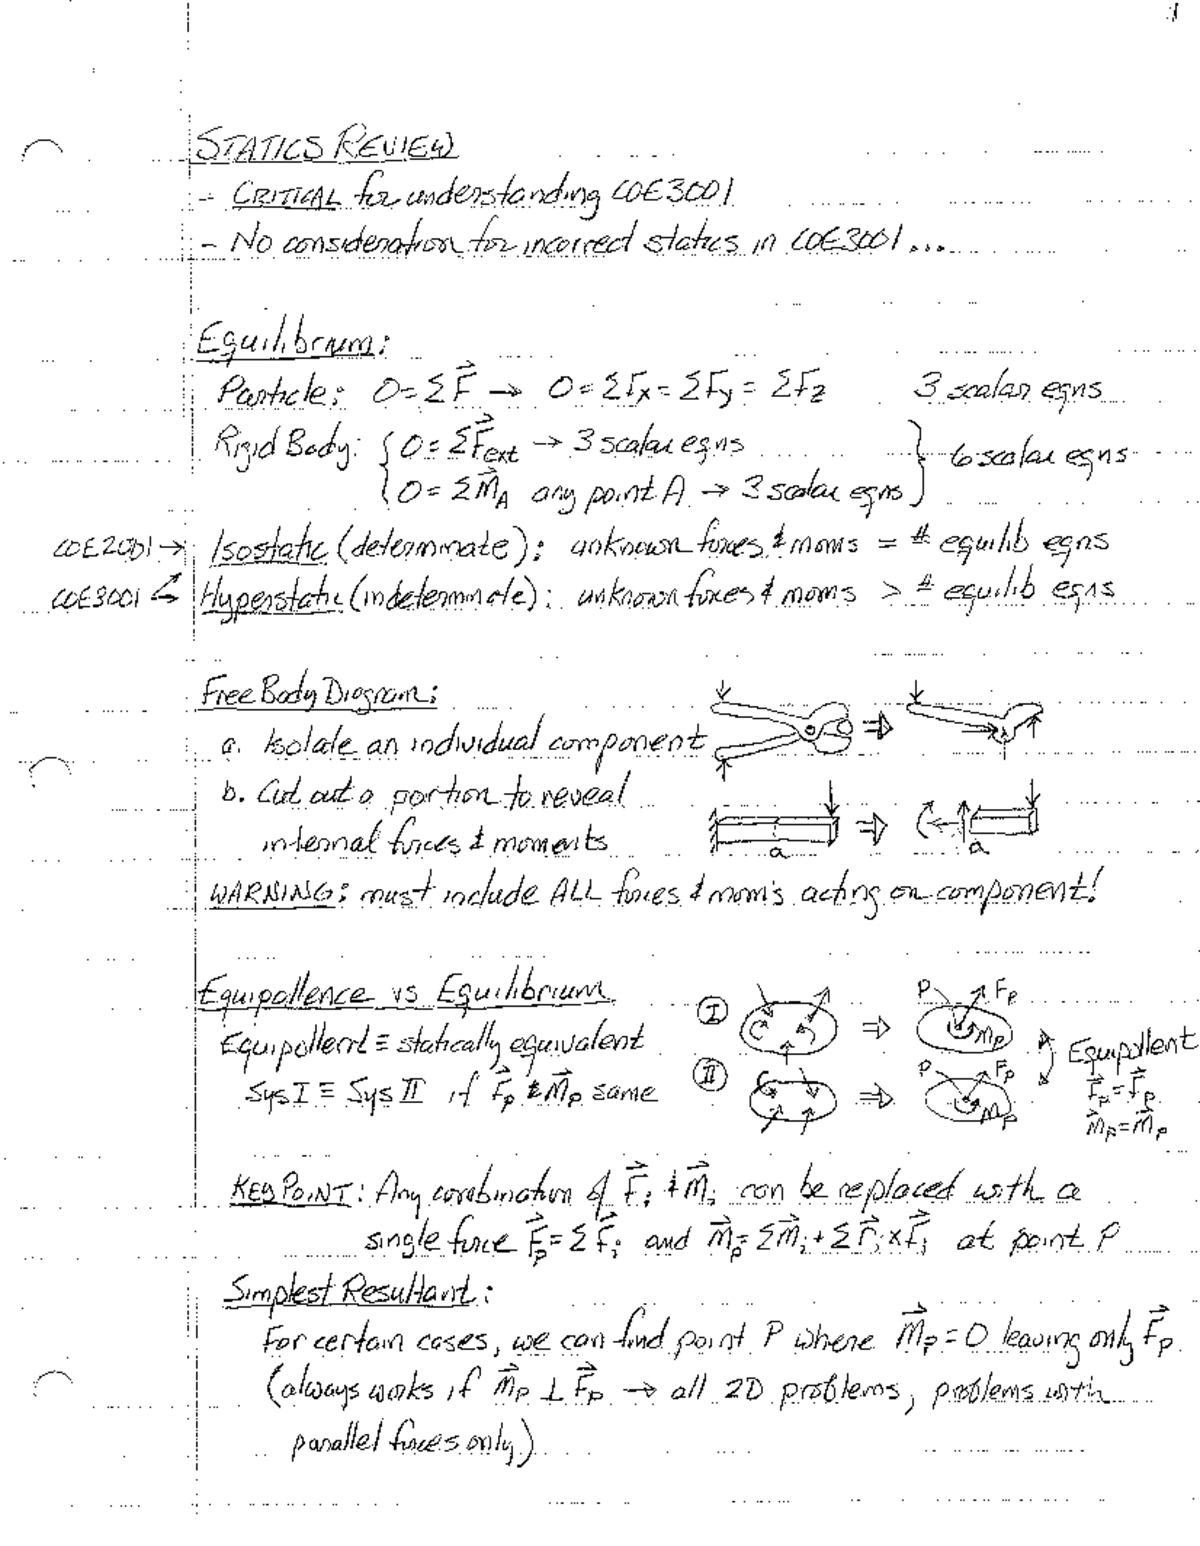 1
STATICS REVIEW
- CRITICAL for understanding COE3001
- No consideration for incorrect statics in COE3001...
Equilibrium:
Particle: 0=ΣF⃗ → 0=ΣFx=ΣFy=ΣFz 3 scalar eqns
Rigid Body: { 0=ΣF⃗ext → 3 scalar eqns
0=ΣM⃗A any point A → 3 scalar eqns } 6 scalar eqns
COE2001 → Isostatic (determinate): unknown forces & moms = # equilib eqns
COE3001 Hyperstatic (indeterminate): unknown forces & moms > # equilib eqns
Free Body Diagram:
a. Isolate an individual component
b. Cut out a portion to reveal
internal forces & moments
a a
WARNING: must include ALL forces & mom's acting on component!
Equipollence vs Equilibrium
Equipollent ≡ statically equivalent
Sys I ≡ Sys II if F⃗p & M⃗p same
I ⇒ P Fp Mp
II ⇒ P Fp Mp
Equipollent
F⃗p=F⃗p
M⃗p=M⃗p
KEY POINT: Any combination of F⃗i & M⃗i can be replaced with a
single force F⃗p=ΣF⃗i and M⃗p=ΣM⃗i+Σr⃗i×F⃗i at point P
Simplest Resultant:
For certain cases, we can find point P where M⃗p=0 leaving only F⃗p
(always works if M⃗p ⊥ F⃗p → all 2D problems, problems with
parallel forces only)